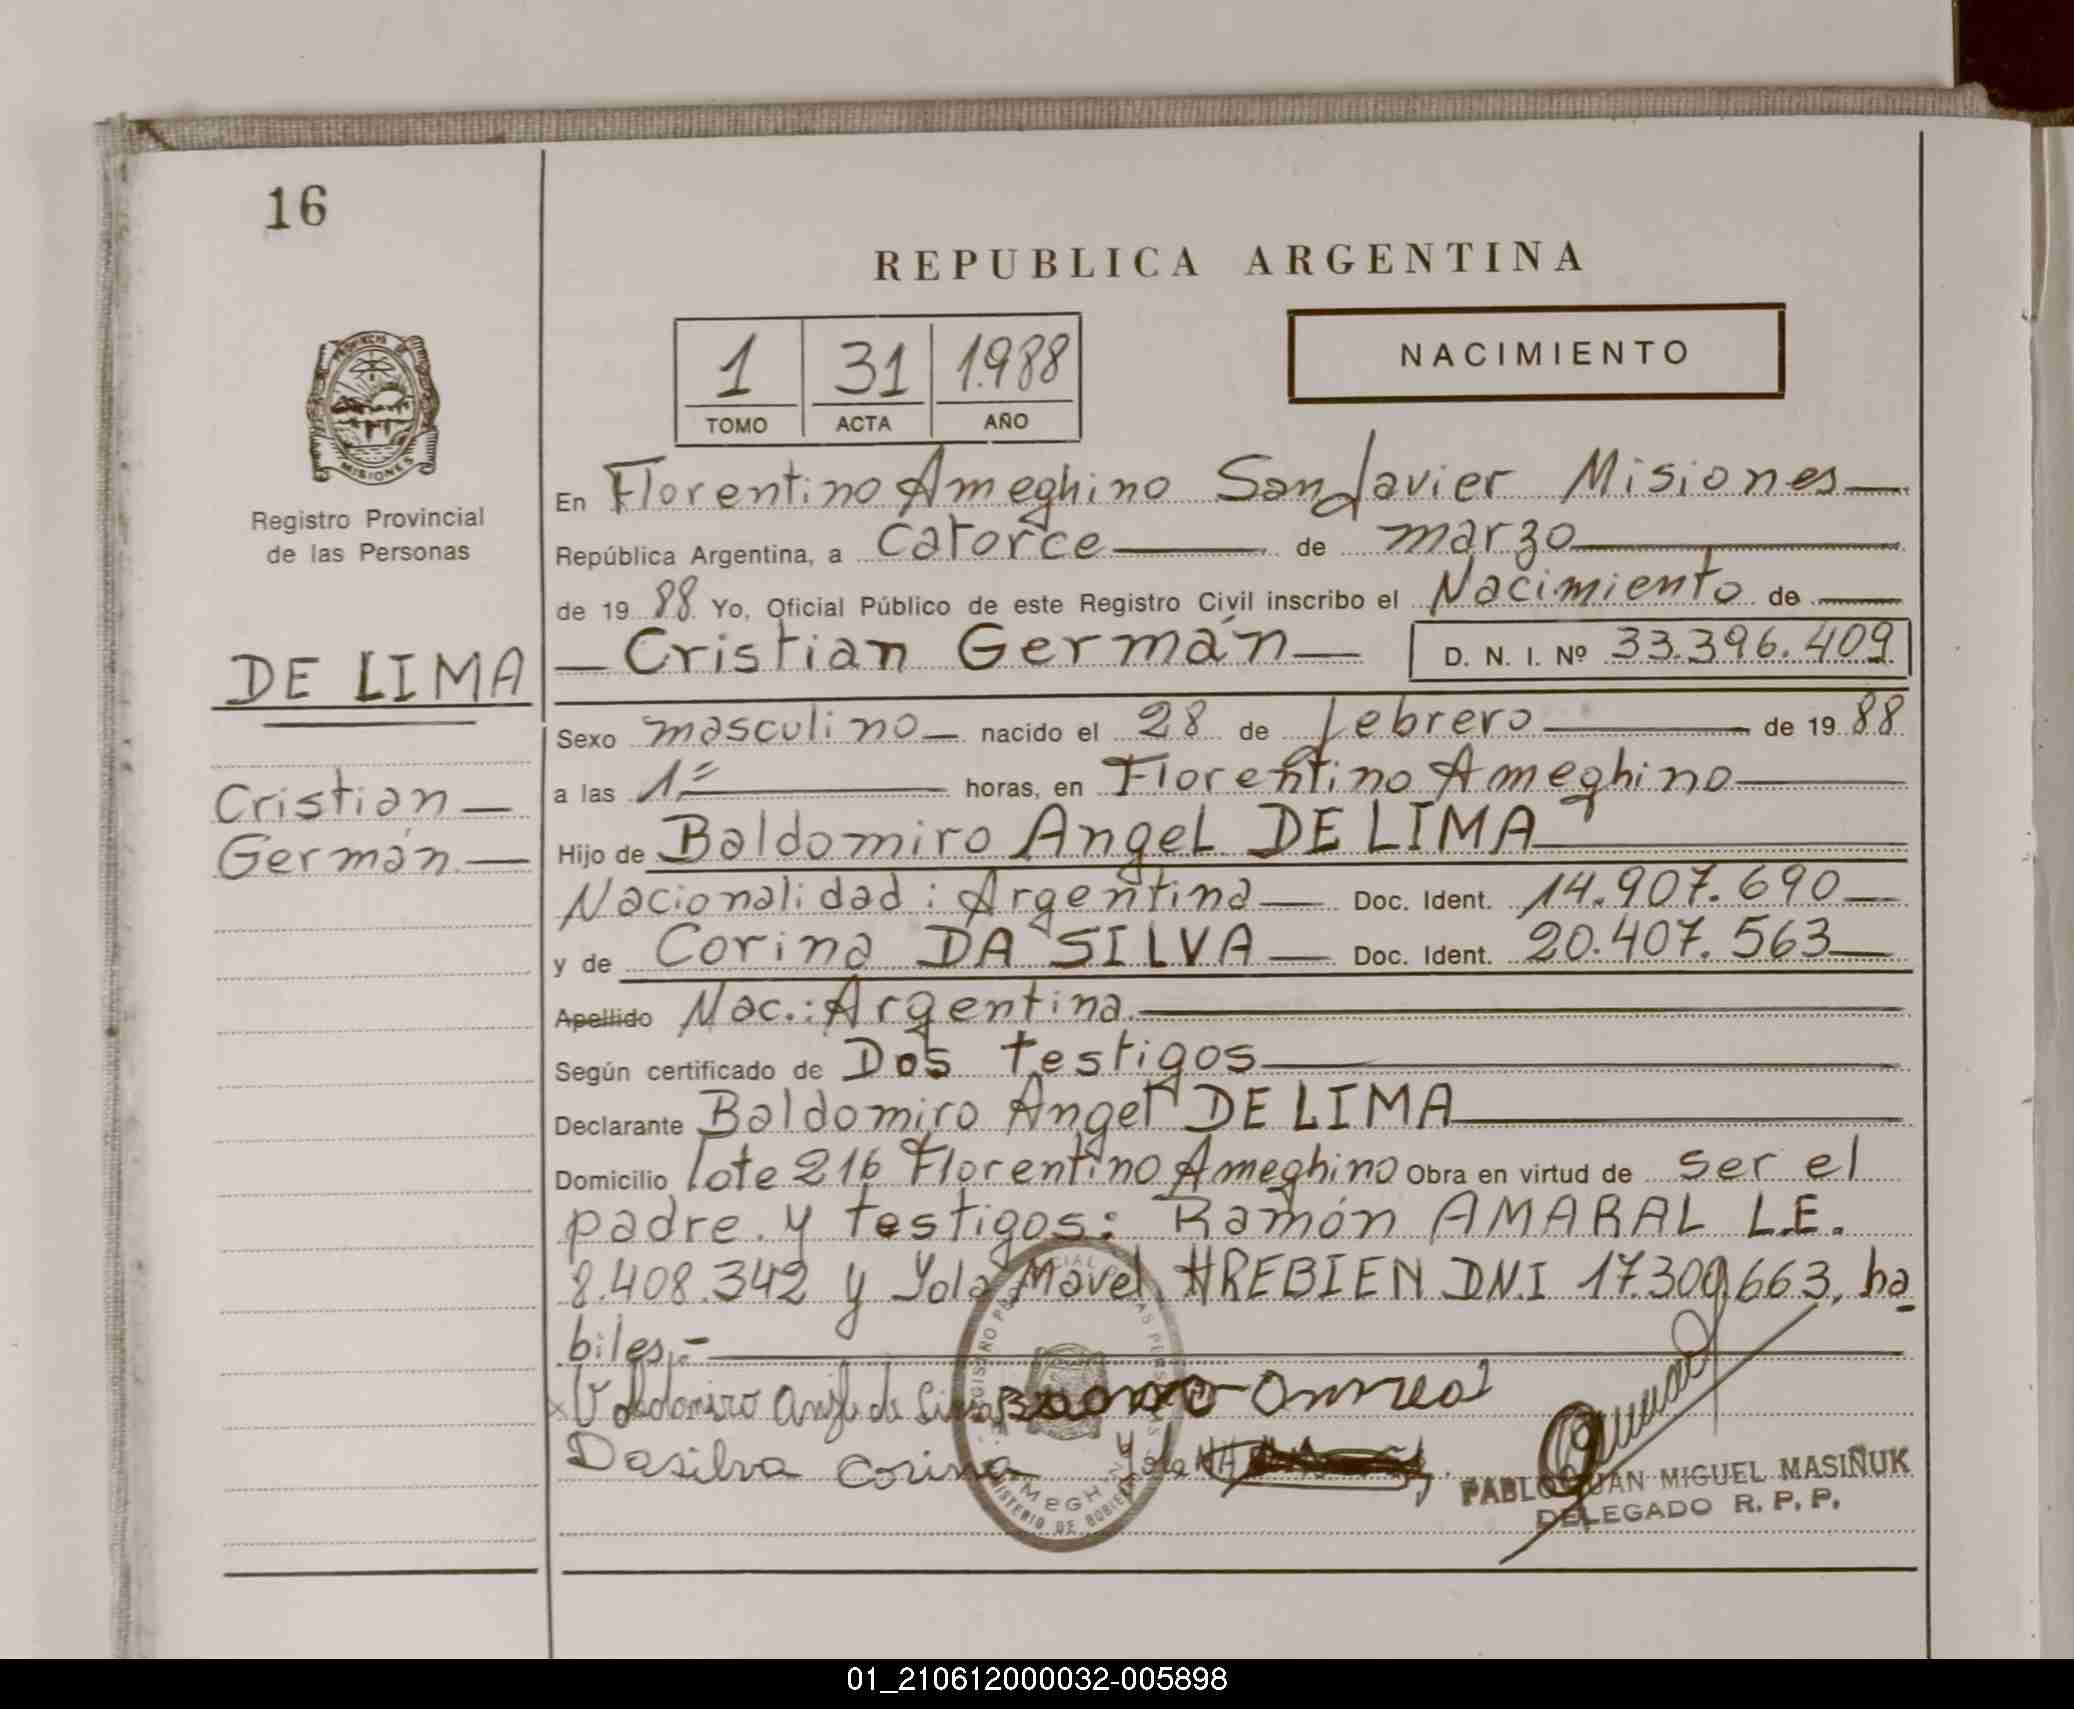 16
REPUBLICA ARGENTINA
1 31 1.988
TOMO ACTA AÑO
NACIMIENTO
PROVINCIA DE MISIONES
Registro Provincial
de las Personas
En Florentino Ameghino San Javier Misiones
República Argentina, a catorce de marzo
de 19 88 Yo, Oficial Público de este Registro Civil inscribo el Nacimiento de
Cristian Germán D. N. I. Nº 33.396.409
DE LIMA
Cristian
Germán
Sexo masculino nacido el 28 de febrero de 19 88
a las 1 horas, en Florentino Ameghino
Hijo de Baldomiro Angel DE LIMA
Nacionalidad: Argentina Doc. Ident. 14.907.690
y de Corina DA SILVA Doc. Ident. 20.407.563
Apellido Nac.: Argentina
Según certificado de Dos testigos
Declarante Baldomiro Angel DE LIMA
Domicilio lote 216 Florentino Ameghino Obra en virtud de ser el
padre y testigos: Ramón AMARAL L.E.
8.408.342 y Yola Mavel HREBIEN DN.I 17.309.663, ha
biles.-
Valdomiro de Lima
Dasilva Corina Yola
PABLO JUAN MIGUEL MASIÑUK
DELEGADO R. P. P.
01_210612000032-005898